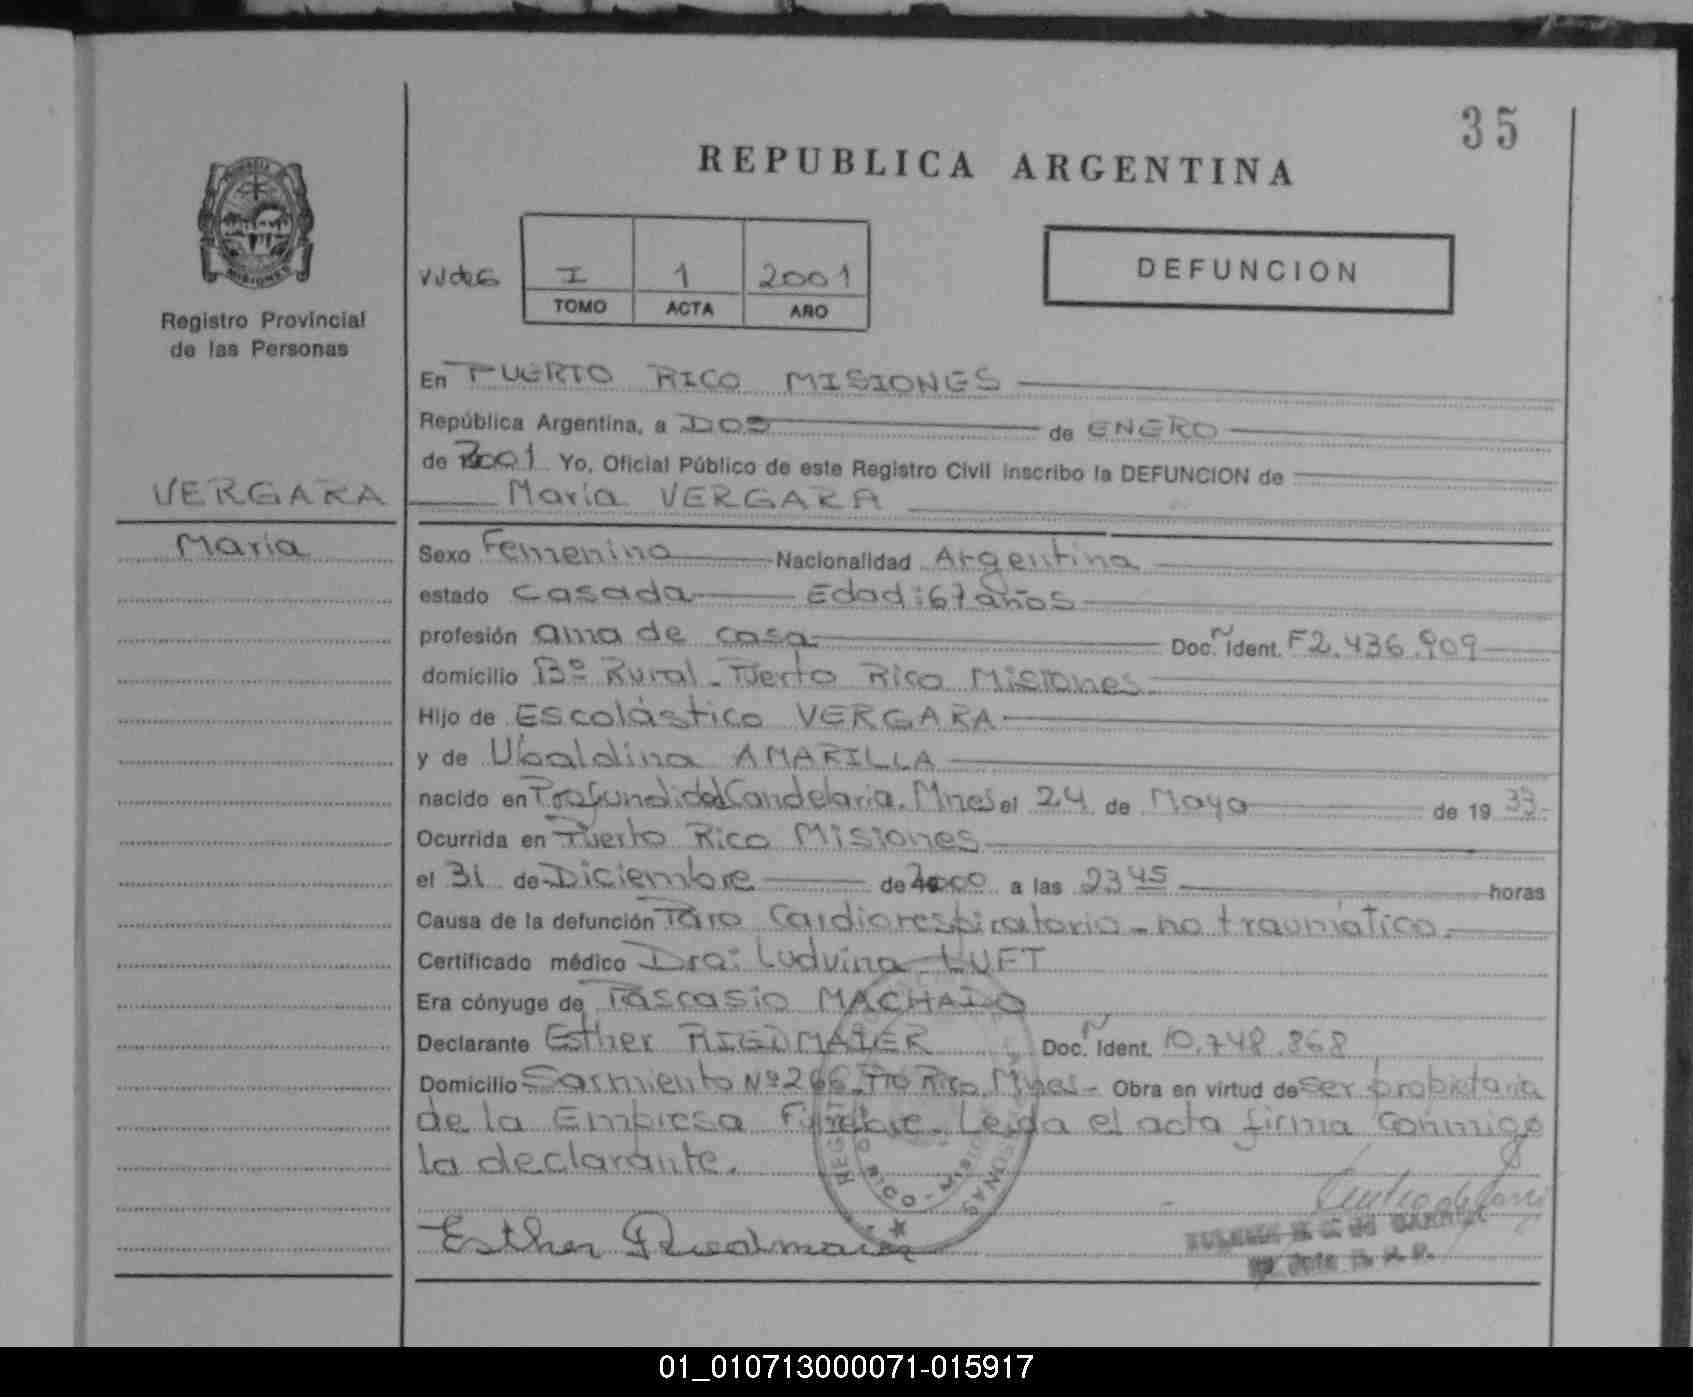 35
REPUBLICA ARGENTINA
I 1 2001
TOMO ACTA AÑO
DEFUNCION
Registro Provincial
de las Personas
En PUERTO RICO MISIONES
República Argentina, a DOS de ENERO
de 2001 Yo, Oficial Público de este Registro Civil inscribo la DEFUNCION de
VERGARA
María VERGARA
María
Sexo Femenino Nacionalidad Argentina
estado casada Edad: 67 años
profesión ama de casa Doc. Ident. F2.436.909
domicilio Bº Rural - Puerto Rico Misiones
Hijo de Escolástico VERGARA
y de Ubaldina AMARILLA
nacido en Profundidad Candelaria. Mnes el 24 de Mayo de 19 33
Ocurrida en Puerto Rico Misiones
el 31 de Diciembre de 2000 a las 23 45 horas
Causa de la defunción Paro Cardiorespiratorio - no traumático.
Certificado médico Dra: Ludvina LUFT
Era cónyuge de Pascasio MACHADO
Declarante Esther RIEDMAIER Doc. Ident. 10.748.868
Domicilio Sarmiento Nº 266 - Pto Rico. Mnes - Obra en virtud de ser propietaria
de la Empresa Fúnebre. Leida el acta firma conmigo
la declarante.
Esther Riedmaier
01_010713000071-015917